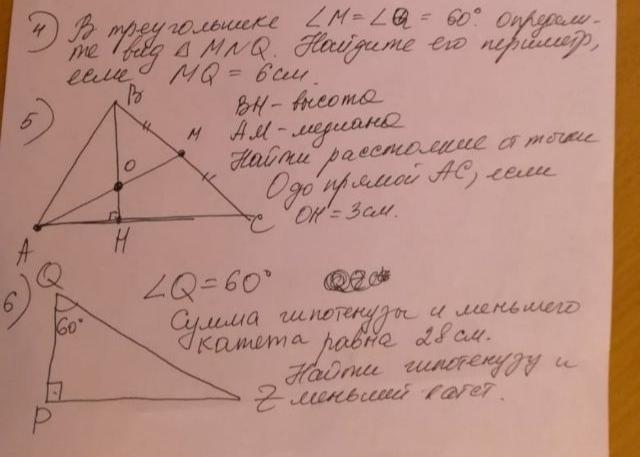 4) В треугольнике ∠M = ∠Q = 60°. Определи-
те вид △MNQ. Найдите его периметр,
если MQ = 6 см.
5)
B
M
O
A
H
C
BH - высота
AM - медиана
Найти расстояние от точки
O до прямой AC, если
OH = 3 см.
6)
Q
60°
P
Z
∠Q = 60°
Сумма гипотенузы и меньшего
катета равна 28 см.
Найти гипотенузу и
меньший катет.